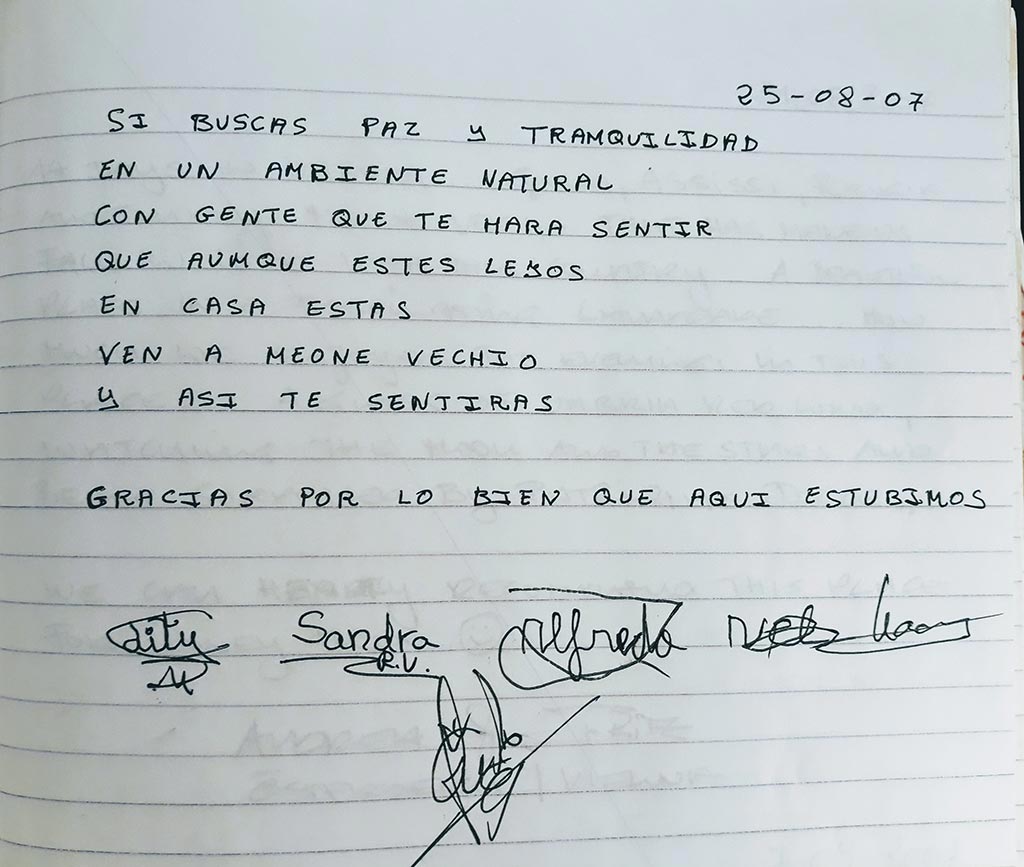 25-08-07
SI BUSCAS PAZ Y TRAMQUILIDAD
EN UN AMBIENTE NATURAL
CON GENTE QUE TE HARA SENTIR
QUE AUMQUE ESTES LEJOS
EN CASA ESTAS
VEN A MEONE VECHIO
Y ASI TE SENTIRAS
GRACIAS POR LO BIEN QUE AQUI ESTUBIMOS
Sandra Alfredo
R.V.